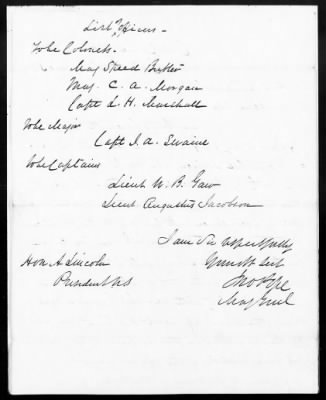 List Officers -
To be Colonels -
Maj Speed Butler
Maj. C. A. Morgan
Capt L. H. Marshall
To be Major
Capt J. A. Swaine
To be Captains
Lieut W. B. Gaw
Lieut Augustus Jacobson
I am Sir respectfully
Your obt Svt
Hon A Lincoln
Jno Pope
President US
Maj Genl